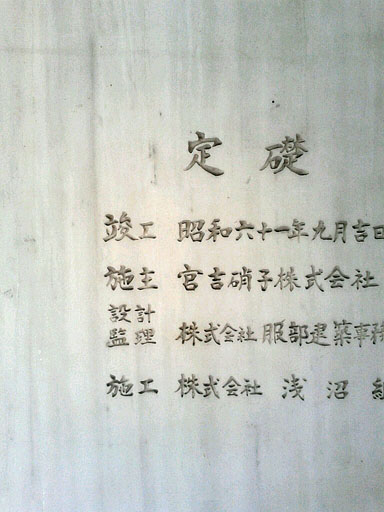 定礎
竣工 昭和六十一年九月吉日
施主 宮吉硝子株式会社
設計
監理 株式会社服部建築事務
施工 株式会社 浅沼組